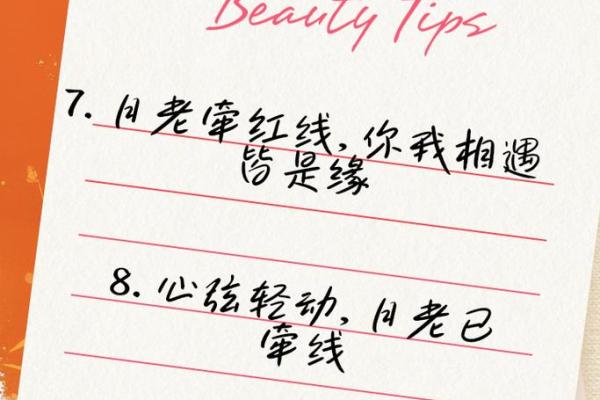 Beauty Tips
7. 月老牵红线，你我相遇
皆是缘
8. 心弦轻动，月老已
牵线